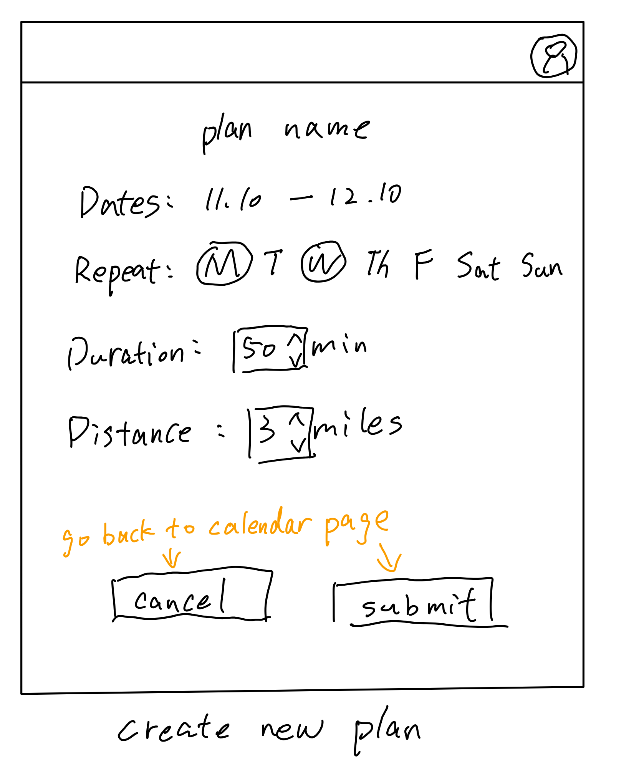 plan name
Dates: 11.10 — 12.10
Repeat: M T W Th F Sat Sun
Duration: 50 min
Distance: 3 miles
go back to calendar page
cancel submit
create new plan